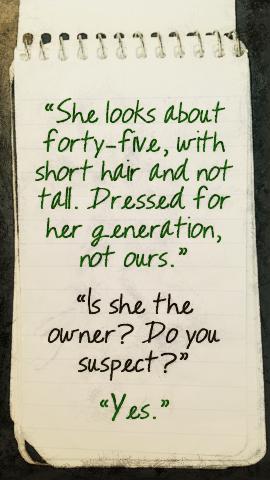 “She looks about
forty-five, with
short hair and not
tall. Dressed for
her generation,
not ours.”
“Is she the
owner? Do you
suspect?”
“Yes.”